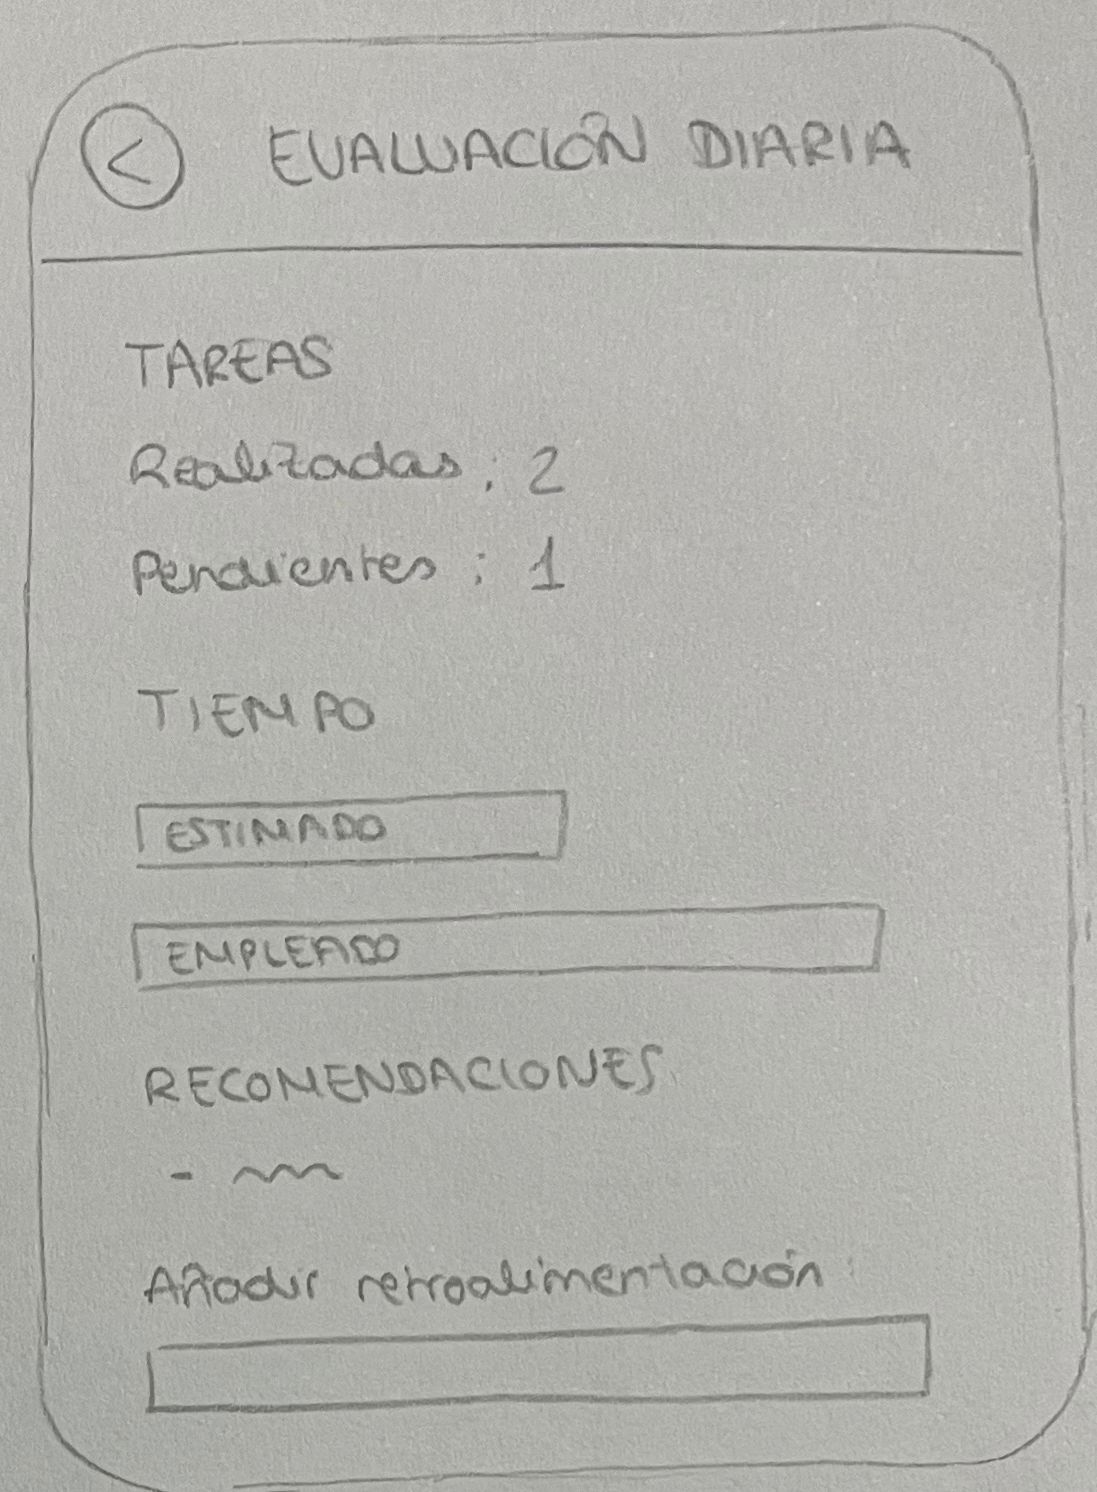 <
EVALUACIÓN DIARIA
TAREAS
Realizadas: 2
Pendientes: 1
TIEMPO
ESTIMADO
EMPLEADO
RECOMENDACIONES
-
Añadir retroalimentación